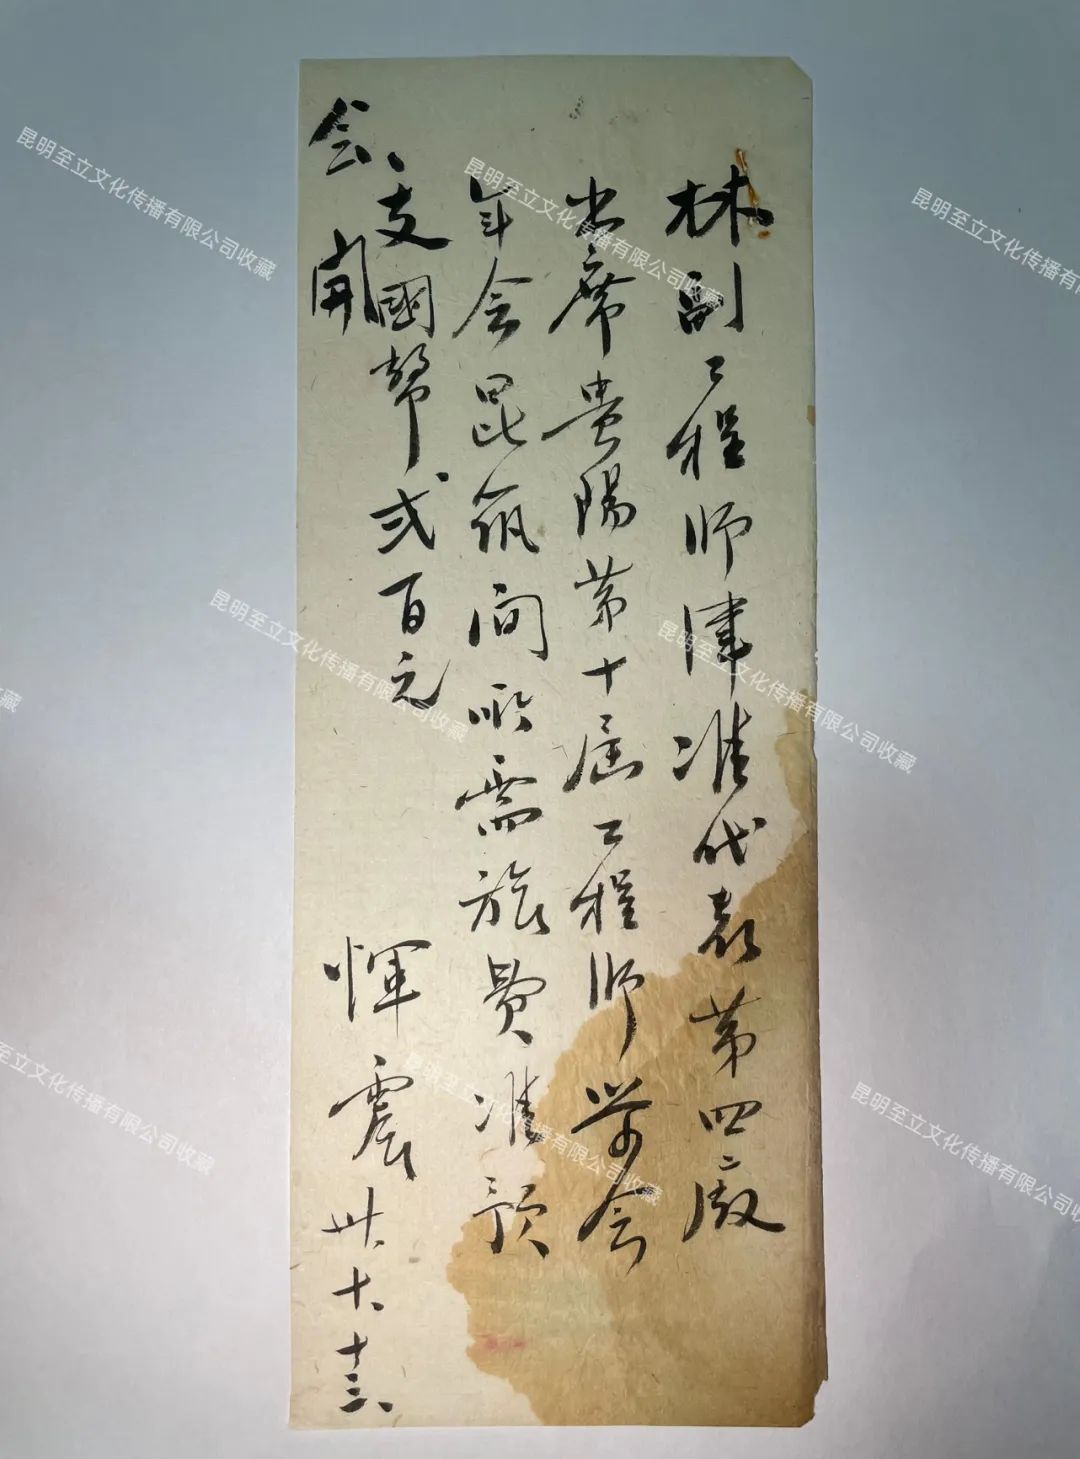 林副工程师津准代表第四廠
出席贵陽第十届工程师学会
年会昆筑间所需旅费准预
支國幣弍百元
会、開
惲震 卅、十、十三、
昆明至立文化传播有限公司收藏
昆明至立文化传播有限公司收藏
昆明至立文化传播有限公司收藏
昆明至立文化传播有限公司收藏
昆明至立文化传播有限公司收藏
立文化传播有限公司收藏
昆明至立文化传播有限公司收藏
昆明至立文化传播有限公司收藏